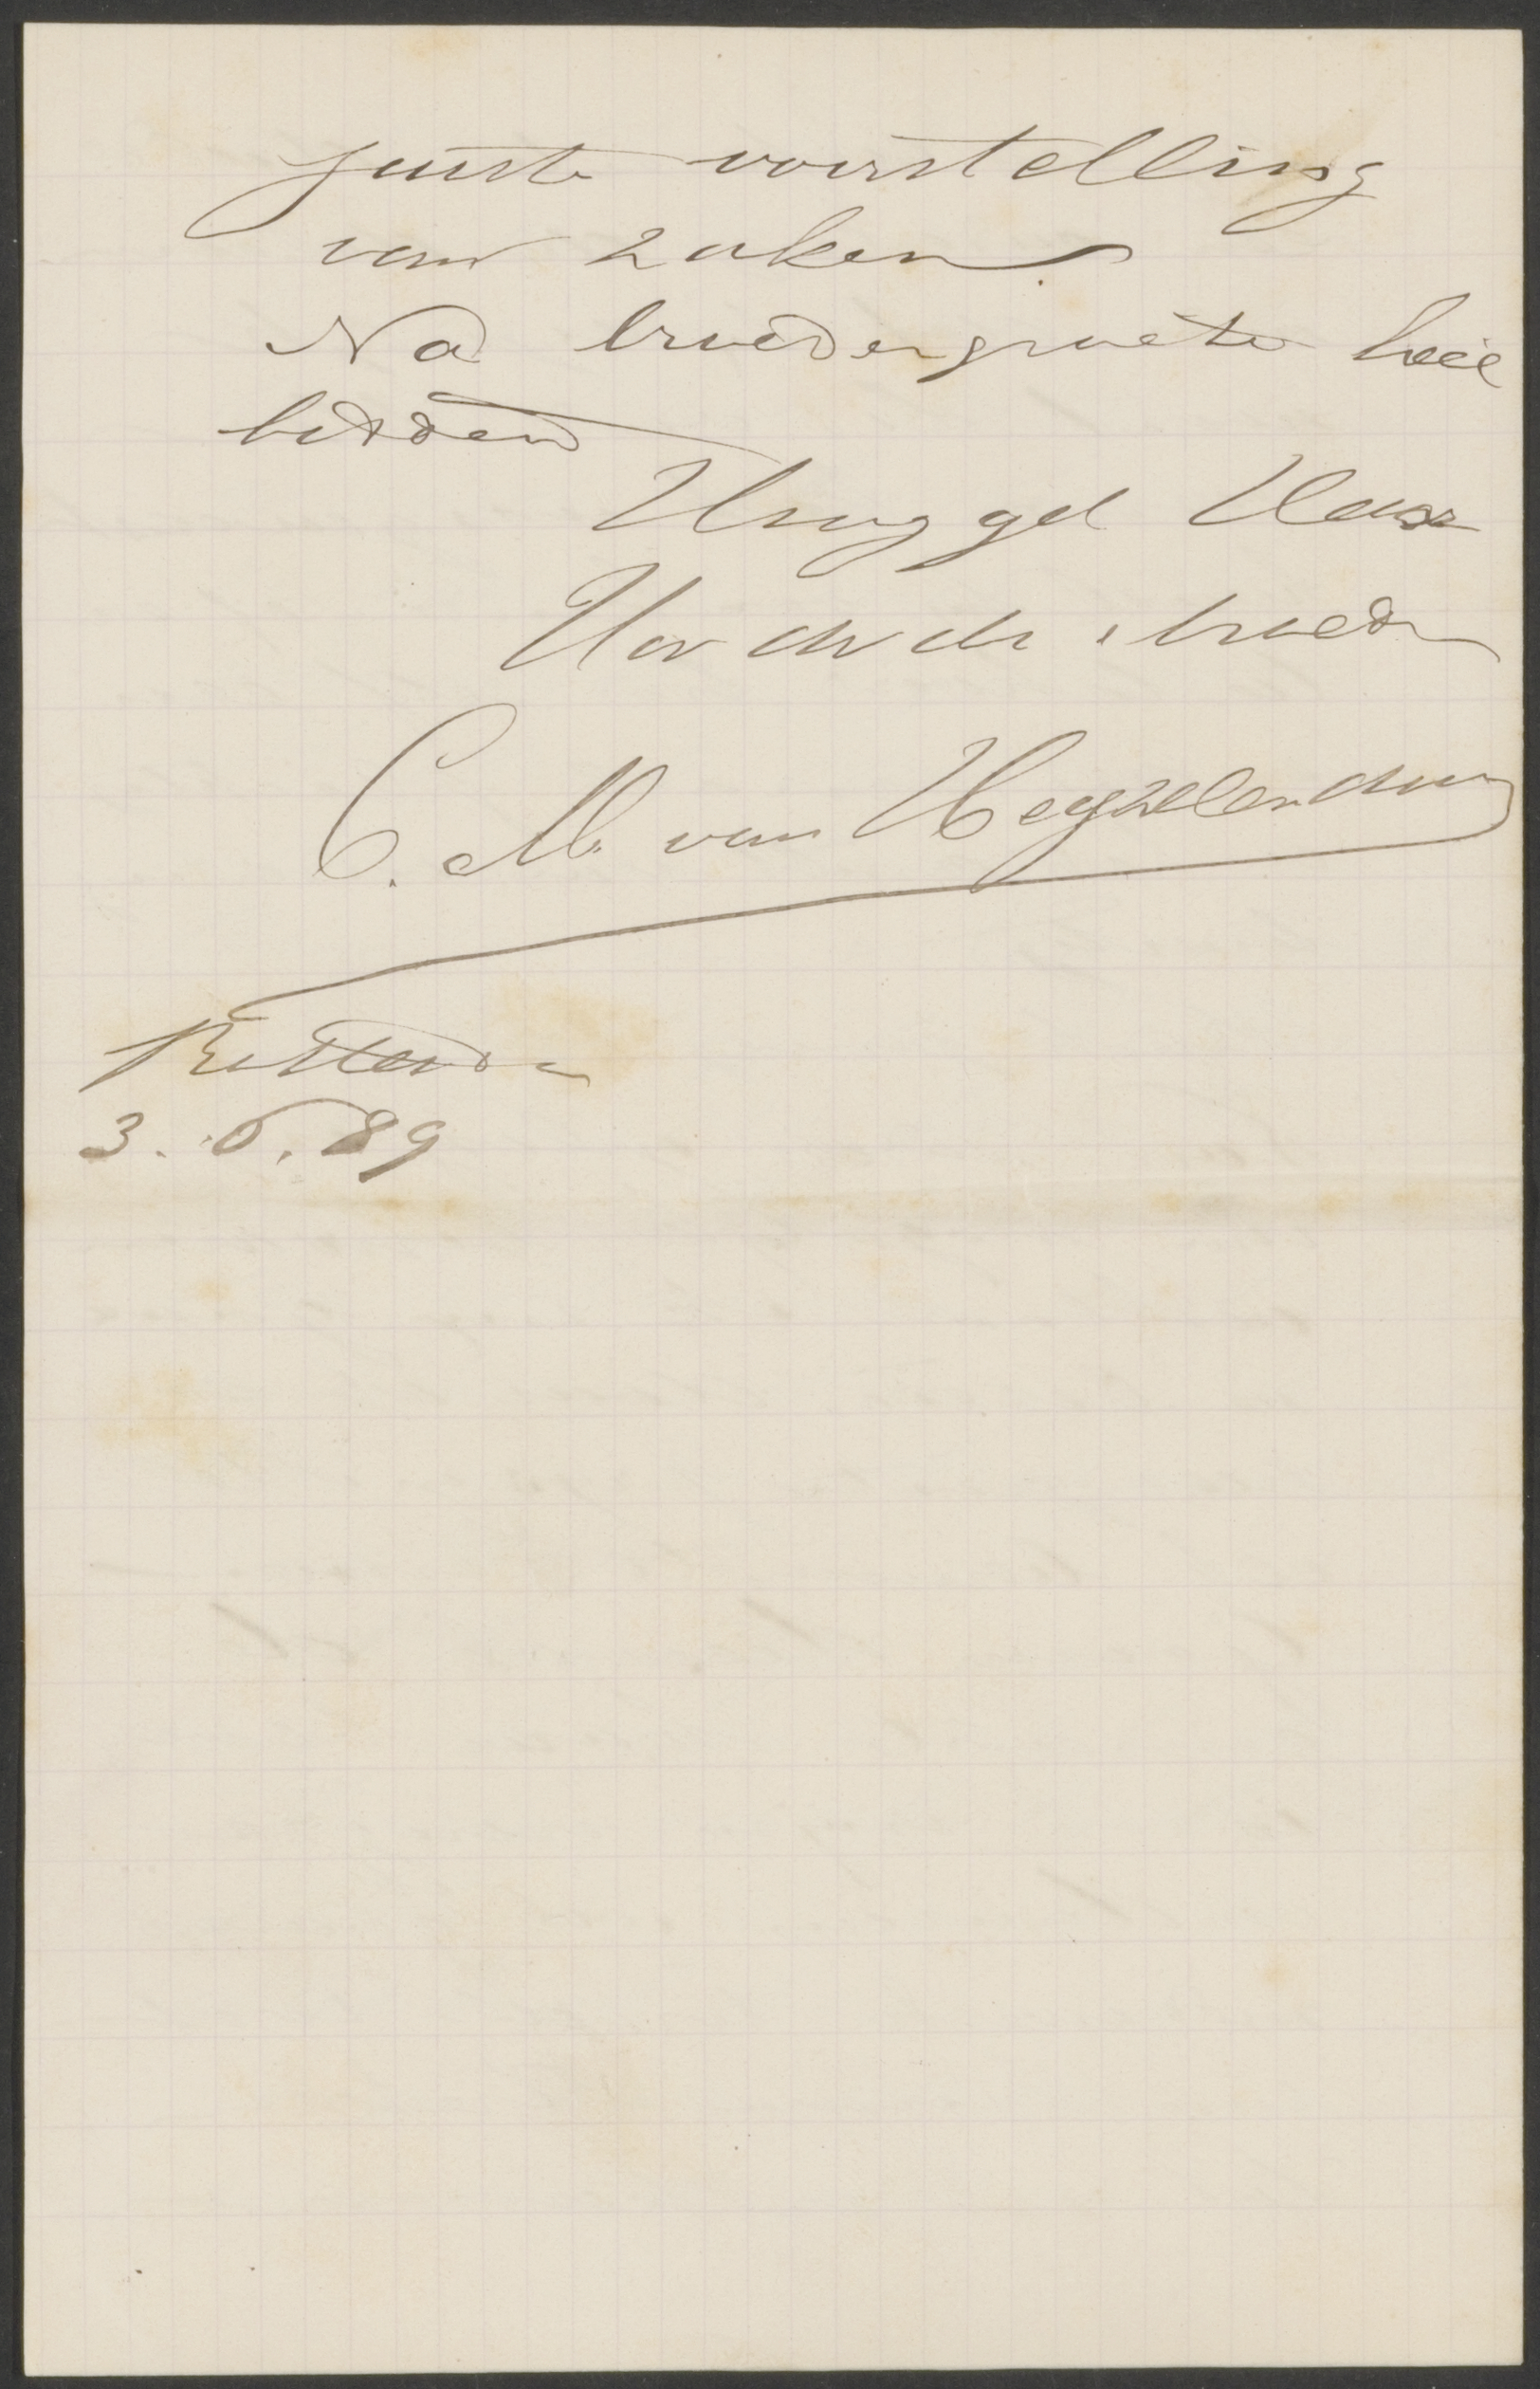 juiste voorstelling
van zaken.
Na broedergroete heil
biddend
Uw dw dr. broeder
C. M. van Heyzelendoorn
Rotterda
3. 6. 89